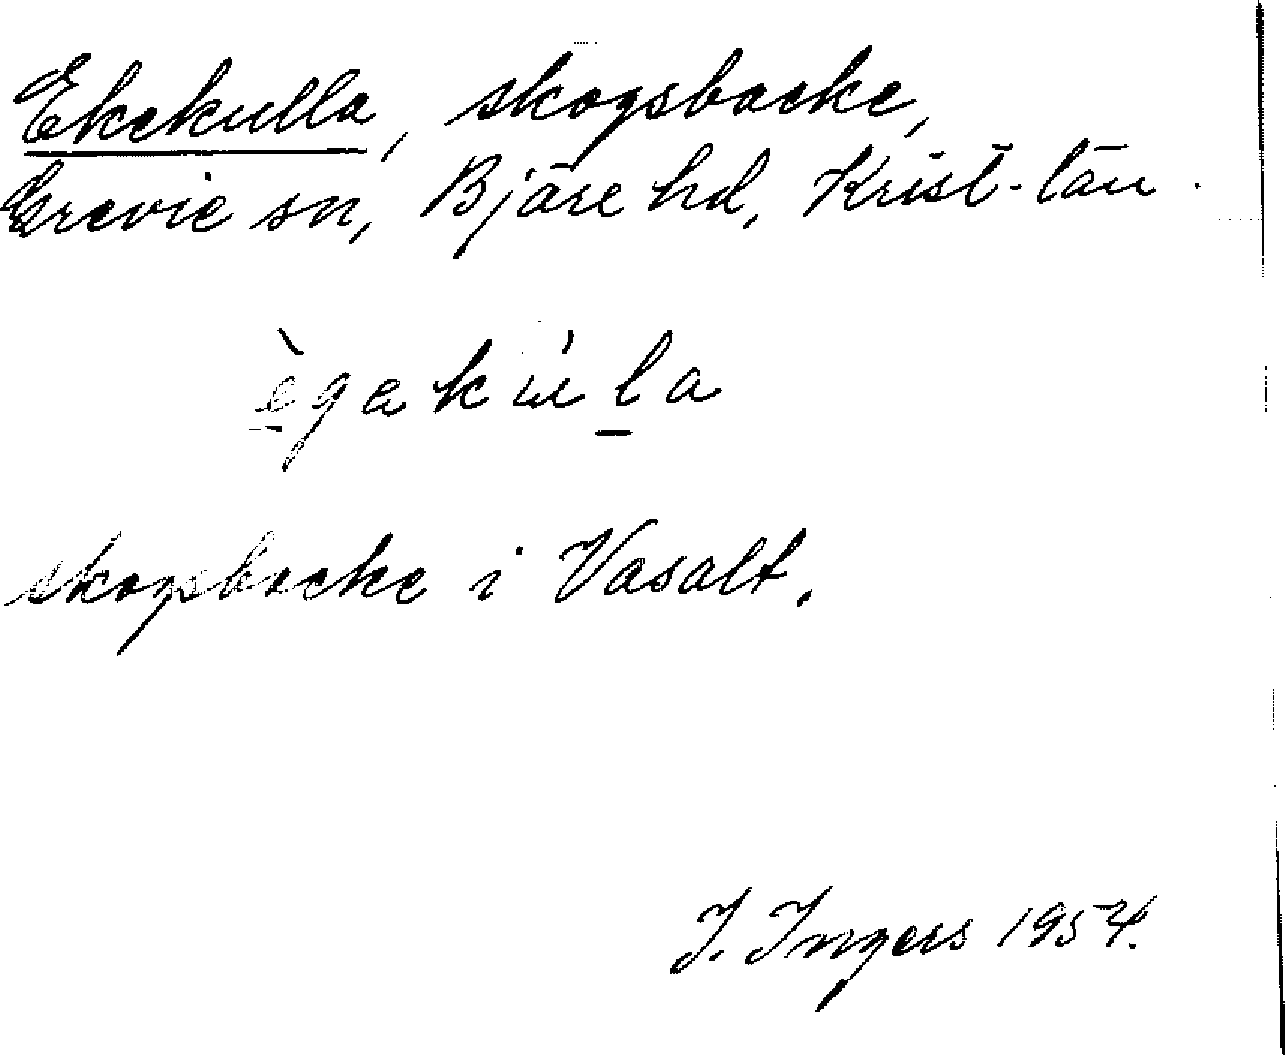 Ekekulla, skogsbacke,
Grevie sn, Bjäre hd, Krist-län.
è̱gakúḻa
skogsbacke i Vasalt.
I. Ingers 1954.